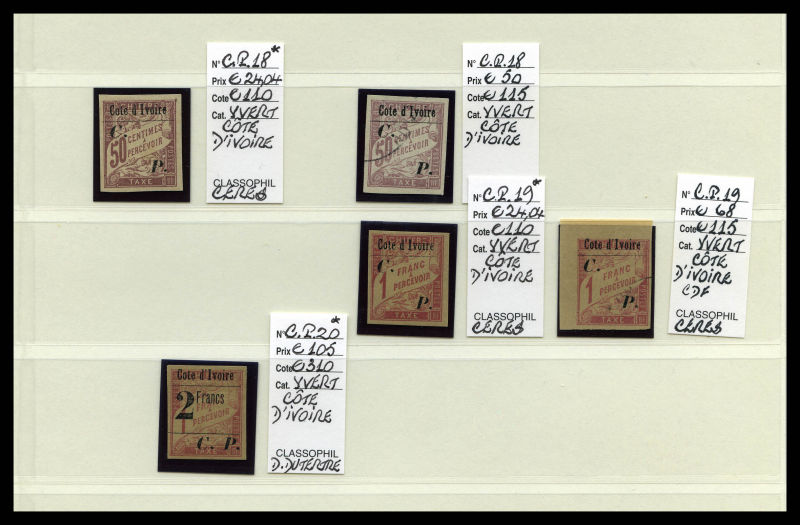 N° C.P.18*
Prix € 24,04
Cote € 110
Cat. YVERT
CÔTE
D'IVOIRE
CLASSOPHIL
CERES
Cote d'Ivoire
C.
50 CENTIMES
A PERCEVOIR
P.
TAXE
N° C.P.18
Prix € 50
Cote € 115
Cat. YVERT
CÔTE
D'IVOIRE
CLASSOPHIL
Cote d'Ivoire
C.
50 CENTIMES
PERCEVOIR
P.
TAXE
N° C.P.19*
Prix € 24,04
Cote € 110
Cat. YVERT
CÔTE
D'IVOIRE
CLASSOPHIL
CERES
Cote d'Ivoire
C.
1 FRANC
A PERCEVOIR
P.
TAXE
N° C.P.19
Prix € 68
Cote € 115
Cat. YVERT
CÔTE
D'IVOIRE
CDF
CLASSOPHIL
CERES
Cote d'Ivoire
C.
1 FRANC
A PERCEVOIR
P.
TAXE
N° C.P.20*
Prix € 105
Cote € 310
Cat. YVERT
CÔTE
D'IVOIRE
CLASSOPHIL
D. DUTERTRE
Cote d'Ivoire
2 Francs
PERCEVOIR
C. P.
TAXE